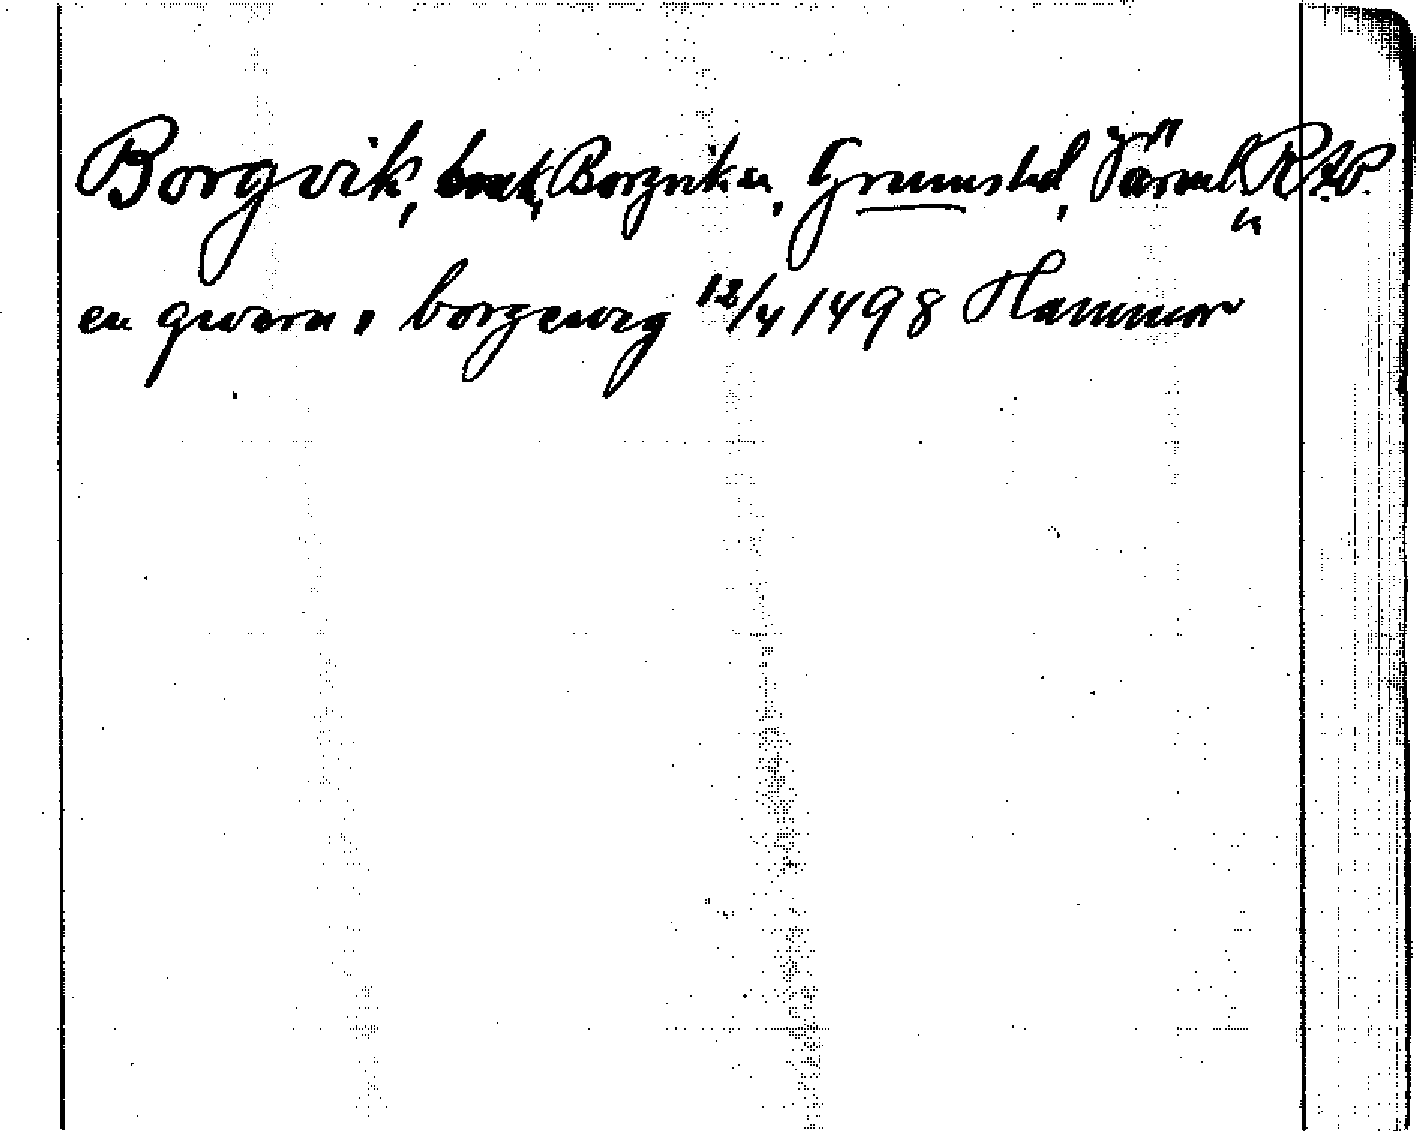 Borgvik, Borgviken, Grumshd, Värml RAP.
en qwærn i borgewig 12/4 1498 Hammar